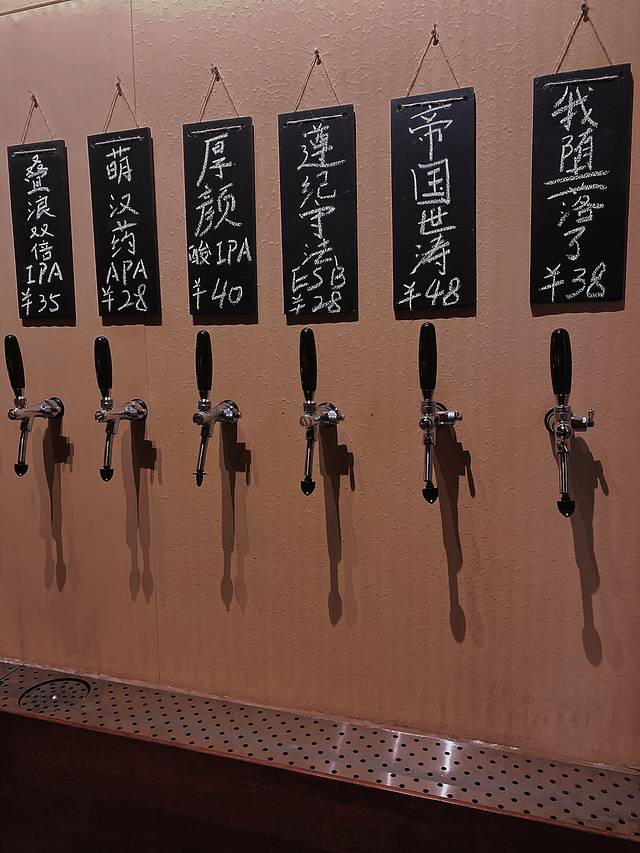 叠浪双倍
IPA
¥35
萌汉药
APA
¥28
厚颜
酸IPA
¥40
遵纪守法
ESB
¥28
帝国世涛
¥48
我堕落了
¥38